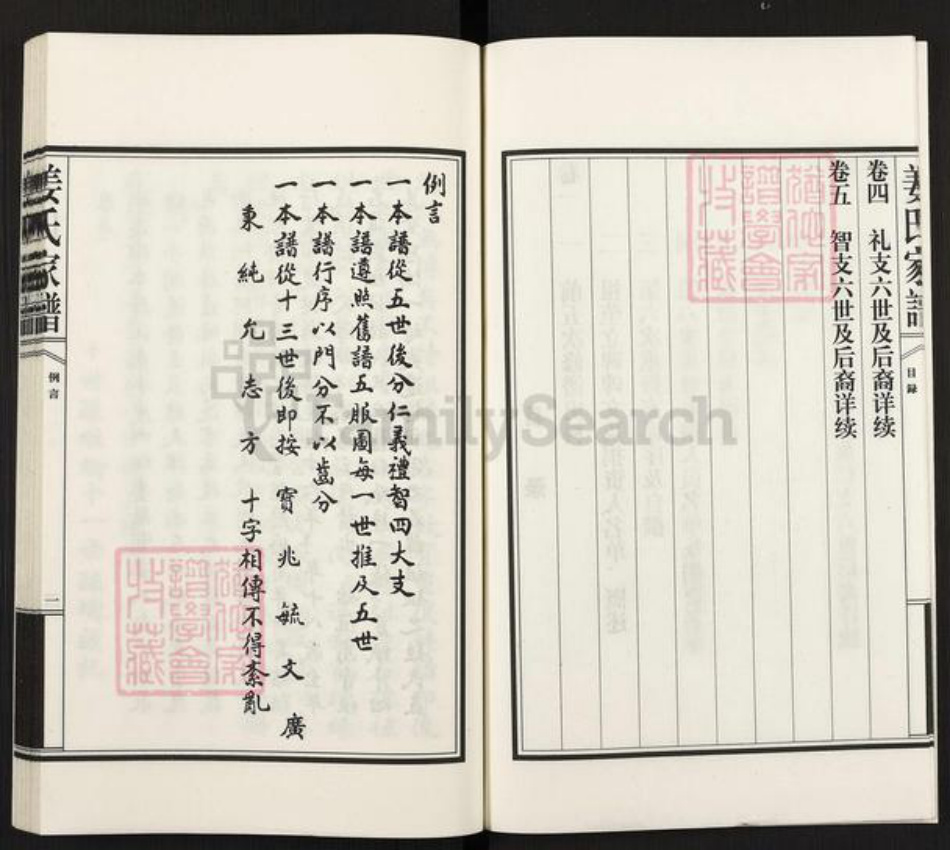 姜氏家譜
目錄
卷四 礼支六世及后裔详续
卷五 智支六世及后裔详续
例言
一本譜從五世後分仁義禮智四大支
一本譜遵照舊譜五服圖每一世推及五世
一本譜行序以門分不以齒分
一本譜從十三世後即按 寶 兆 毓 文 廣
秉 純 允 志 方 十字相傳不得紊亂
姜氏家譜
例言
一
FamilySearch